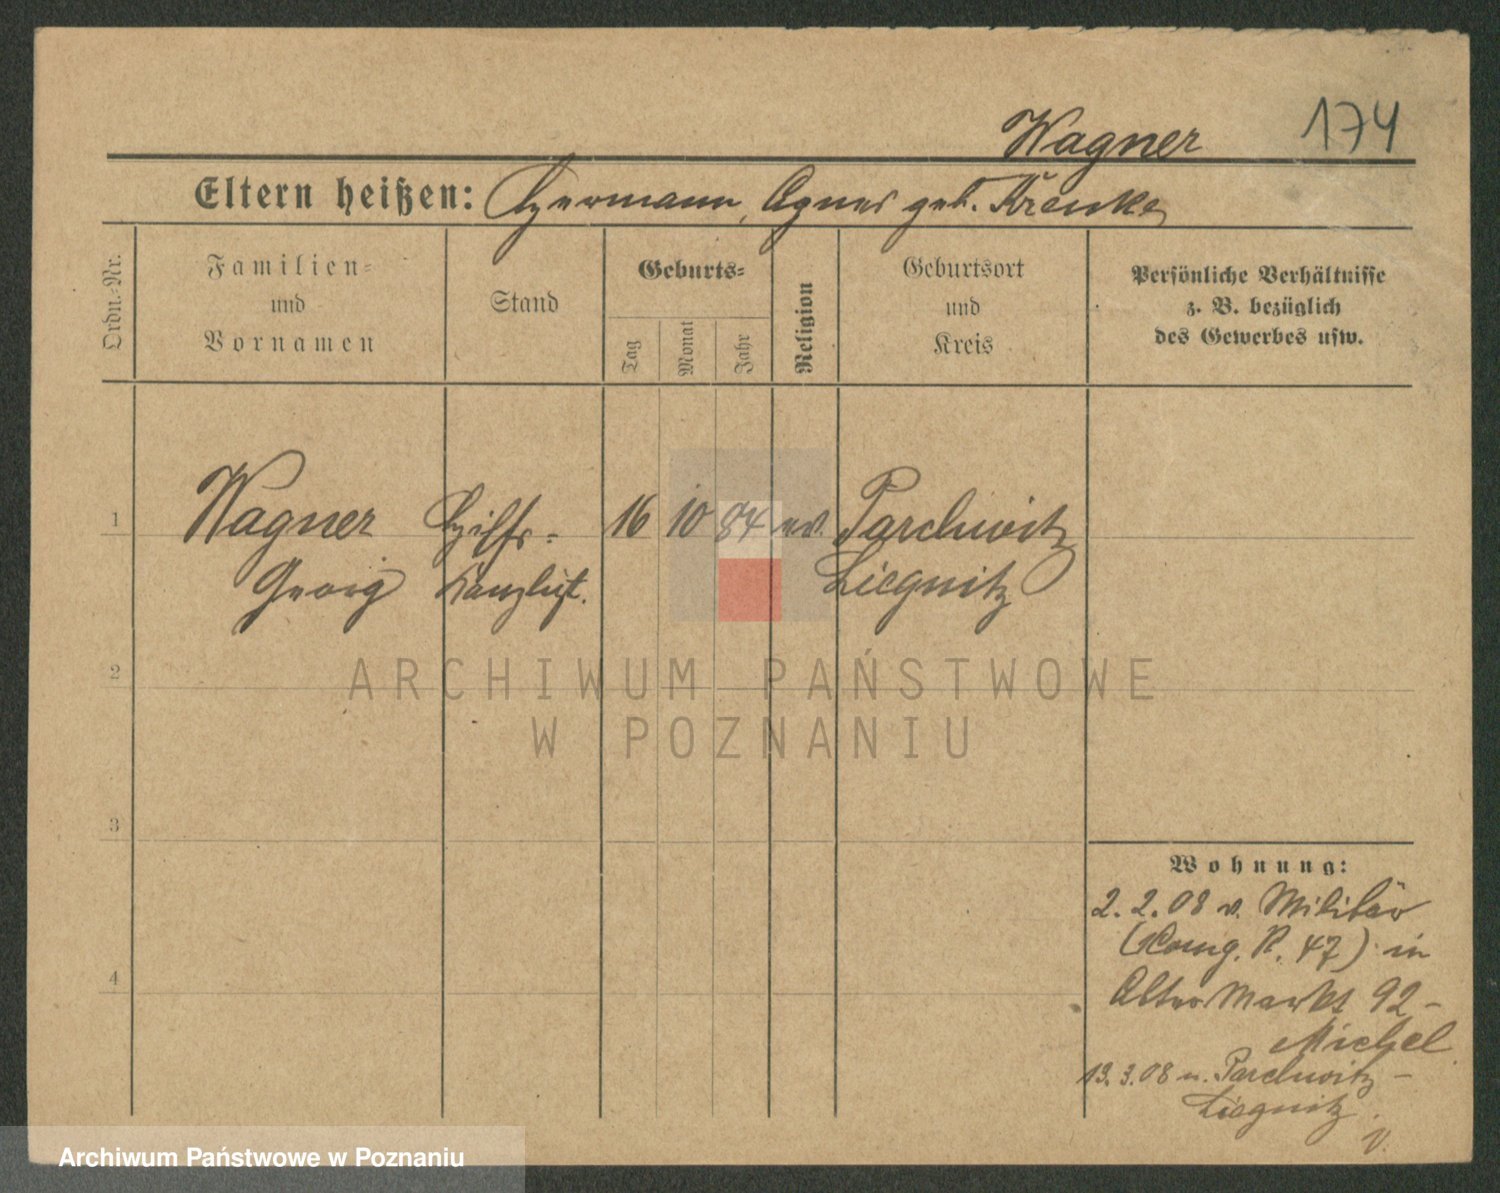 Wagner 174
Eltern heißen: Hermann, Agnes geb. Krenke
Ordn.-Nr.
Familien-
und
Vornamen
Stand
Geburts-
Tag
Monat
Jahr
Religion
Geburtsort
und
Kreis
Persönliche Verhältnisse
z. B. bezüglich
des Gewerbes usw.
1 Wagner Hilfs- 16 10 84 ev. Parchwitz
Georg Kanzlist. Liegnitz
2
3
4
Wohnung:
2.2.08 v. Militär
( R. 47) in
Alter Markt 92-
Michel
13.3.08 n. Parchwitz-
Liegnitz.
V.
ARCHIWUM PAŃSTWOWE
W POZNANIU
Archiwum Państwowe w Poznaniu